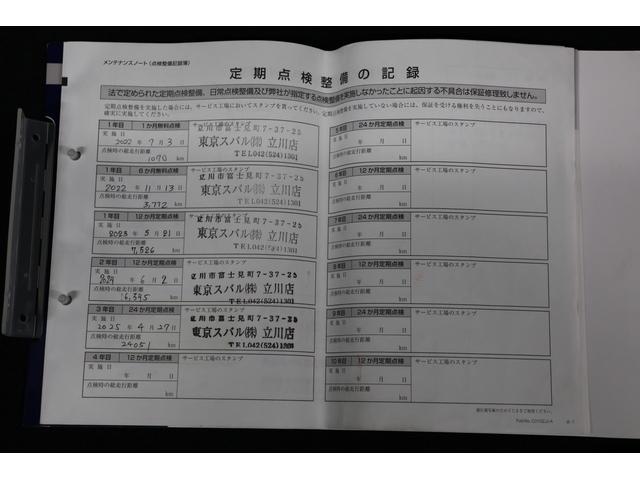 メンテナンスノート（点検整備記録簿）
定期点検整備の記録
法で定められた定期点検整備、日常点検整備及び弊社が指定する点検整備を実施しなかったことに起因する不具合は保証修理致しません。
定期点検整備を実施した場合には、サービス工場においてスタンプを貰ってください。定期点検整備を実施していない場合には、保証を受ける権利を失うこともなりますので、
確実に実施してください。
1年目 1か月無料点検 サービス工場のスタンプ
実施日
2022年7月3日
点検時の総走行距離
1070 km
立川市富士見町7-37-25
東京スバル㈱ 立川店
TEL042(524)1301
1年目 6か月無料点検 サービス工場のスタンプ
実施日
2022年11月13日
点検時の総走行距離
3,772 km
立川市富士見町7-37-25
東京スバル㈱ 立川店
TEL042(524)1301
1年目 12か月定期点検 サービス工場のスタンプ
実施日
2023年5月21日
点検時の総走行距離
7,526 km
立川市富士見町7-37-25
東京スバル㈱ 立川店
TEL042(524)1301
2年目 12か月定期点検 サービス工場のスタンプ
実施日
2024年6月2日
点検時の総走行距離
16,345 km
立川市富士見町7-37-25
東京スバル㈱ 立川店
TEL042(524)1301
3年目 24か月定期点検 サービス工場のスタンプ
実施日
2025年4月27日
点検時の総走行距離
24051 km
立川市富士見町7-37-25
東京スバル㈱ 立川店
TEL042(524)1301
4年目 12か月定期点検 サービス工場のスタンプ
実施日
年 月 日
点検時の総走行距離
km
5年目 24か月定期点検 サービス工場のスタンプ
実施日
年 月 日
点検時の総走行距離
km
6年目 12か月定期点検 サービス工場のスタンプ
実施日
年 月 日
点検時の総走行距離
km
7年目 12か月定期点検 サービス工場のスタンプ
実施日
年 月 日
点検時の総走行距離
km
8年目 12か月定期点検 サービス工場のスタンプ
実施日
年 月 日
点検時の総走行距離
km
9年目 24か月定期点検 サービス工場のスタンプ
実施日
年 月 日
点検時の総走行距離
km
10年目 12か月定期点検 サービス工場のスタンプ
実施日
年 月 日
点検時の総走行距離
km